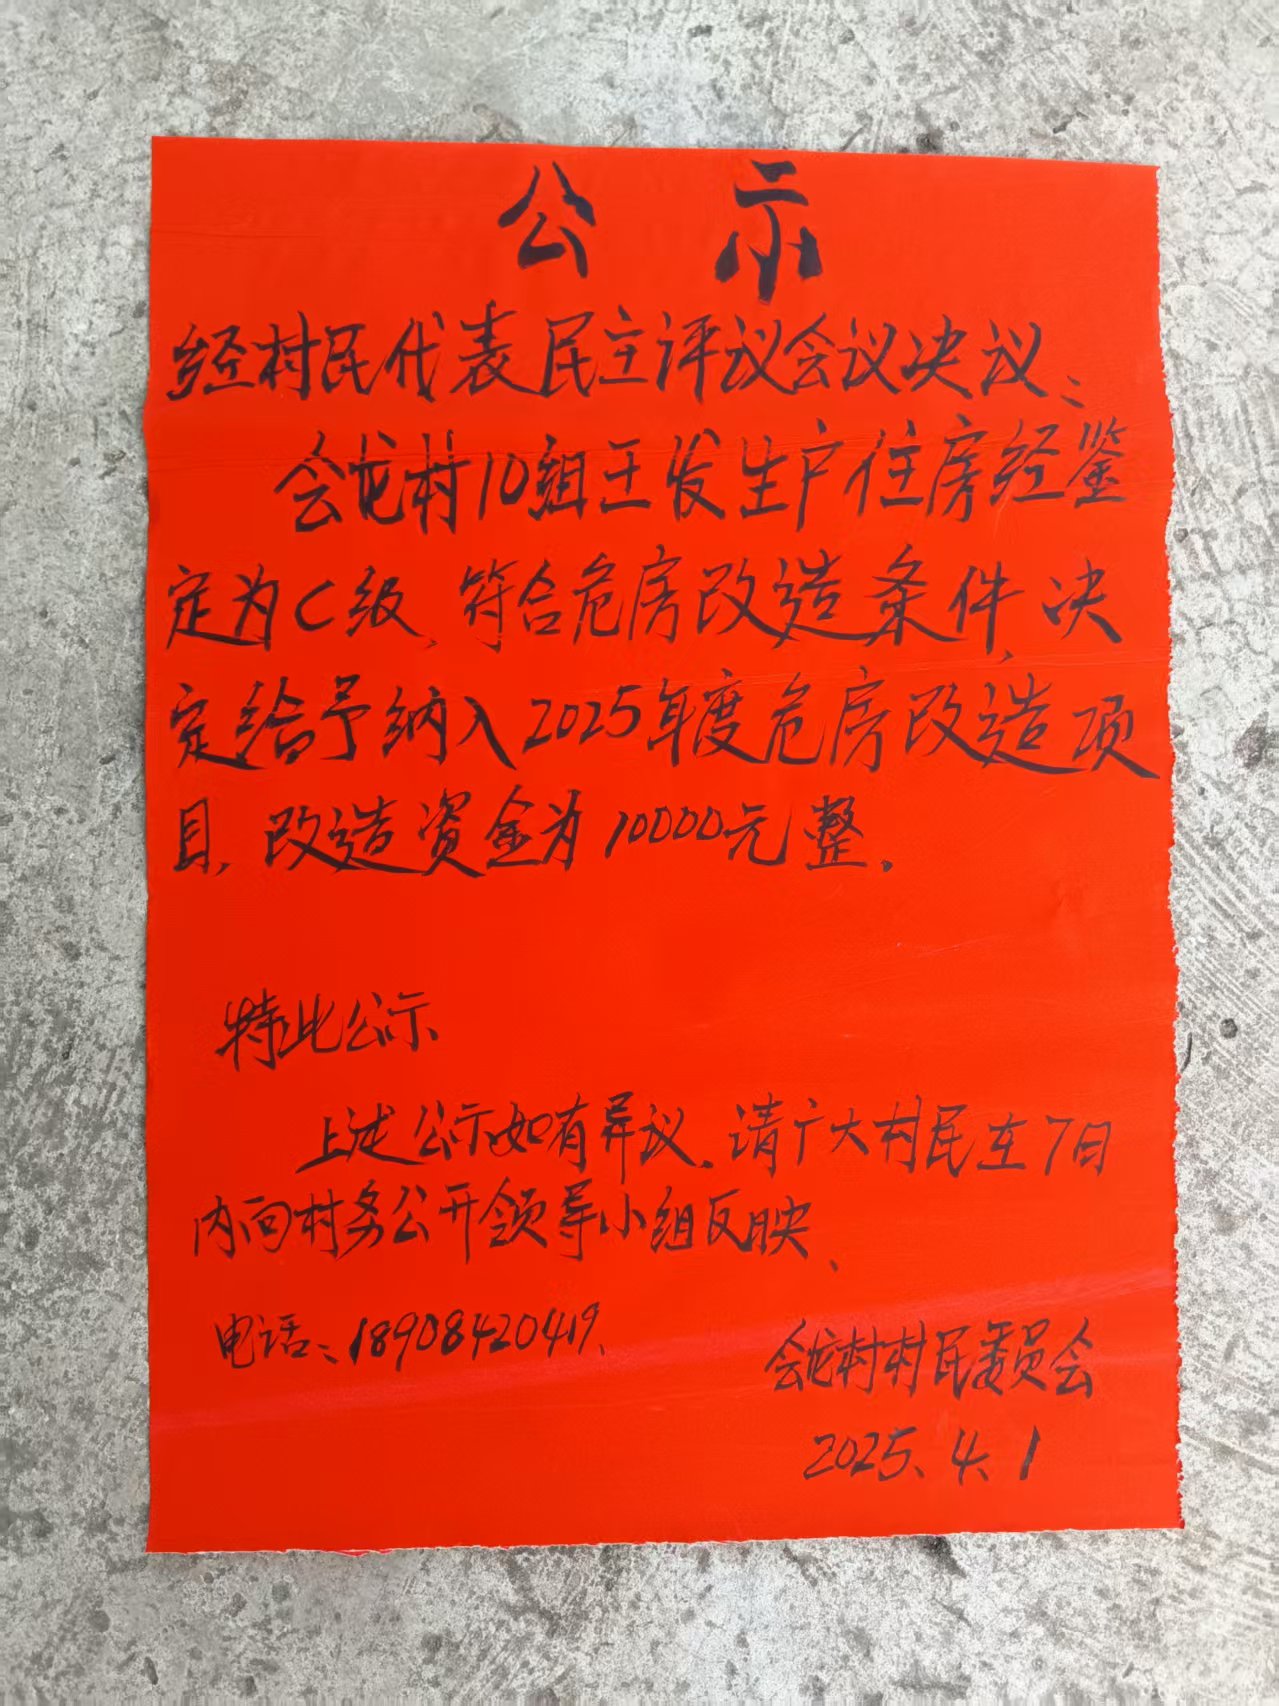 公示
经村民代表民主评议会议决议:
会龙村10组王发生户住房经鉴
定为C级,符合危房改造条件,决
定给予纳入2025年度危房改造项
目,改造资金为10000元整.
特此公示
上述公示如有异议,请广大村民在7日
内向村务公开领导小组反映、
电话:18908420419.
会龙村村民委员会
2025、4、1